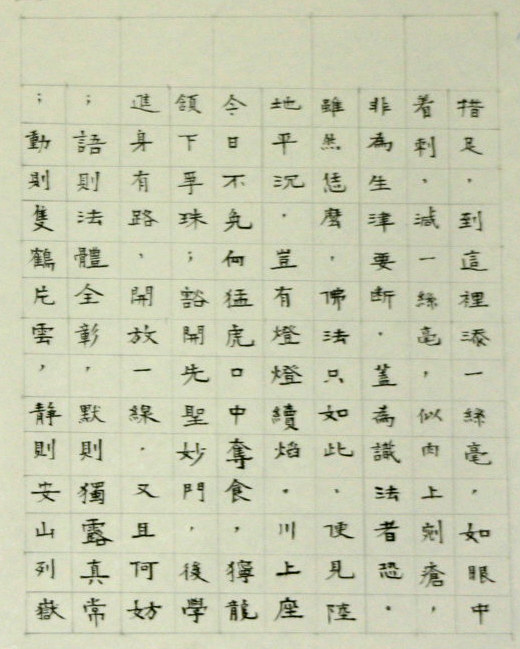 措足，到這裡添一絲毫，如眼中
着刺，減一絲毫，似肉上剜瘡，
非為生津要断。蓋為識法者恐。
雖然恁麼，佛法只如此，便見陸
地平沉。豈有燈燈續焰。川上座
今日不免何猛虎口中奪食，獰龍
頷下爭珠；豁開先聖妙門，後學
進身有路，開放一線。又且何妨
；語則法體全彰，默則獨露真常
；動則隻鶴片雲，静則安山列嶽